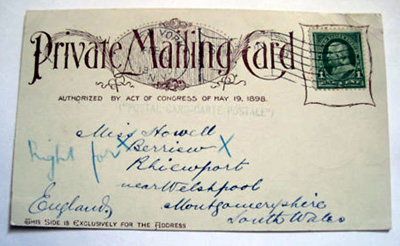 Private Mailing Card
AUTHORIZED BY ACT OF CONGRESS OF MAY 19, 1898.
(POSTAL CARD-CARTE POSTALE)
Miss Howell
Right for X Berriew X
Rhiewport
near Welshpool
England, Montgomeryshire
South Wales
THIS SIDE IS EXCLUSIVELY FOR THE ADDRESS